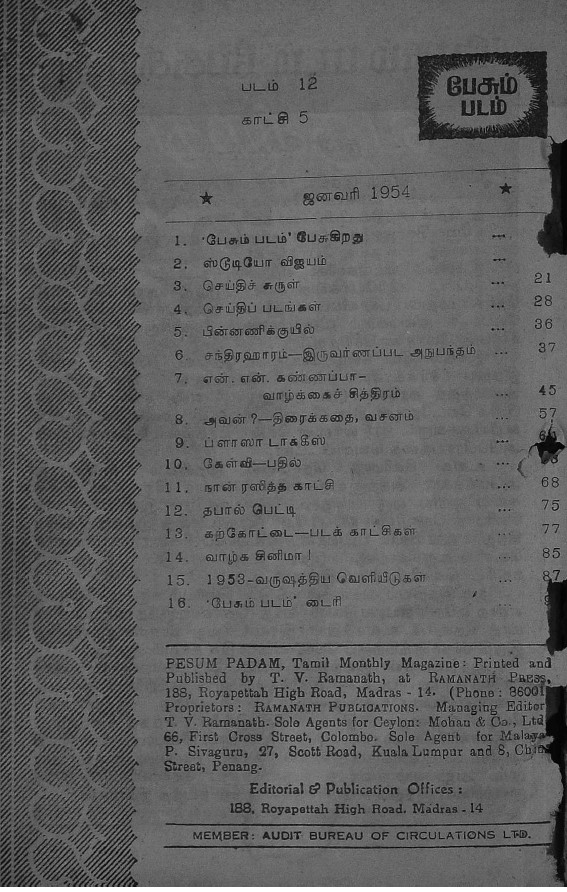 படம் 12
பேசும்
படம்
காட்சி 5
★ ஜனவரி 1954 ★
1. 'பேசும் படம்' பேசுகிறது ...
2. ஸ்டூடியோ விஜயம் ...
3. செய்திச் சுருள் ... 21
4. செய்திப் படங்கள் ... 28
5. பின்னணிக்குயில் ... 36
6 சந்திரஹாரம்—இருவர்ணப்பட அநுபந்தம் ... 37
7. என். என். கண்ணப்பா-
வாழ்க்கைச் சித்திரம் ... 45
8. அவன் ?—திரைக்கதை, வசனம் ... 57
9. ப்ளாஸா டாக்கீஸ் ...
10. கேள்வி—பதில் ...
11. நான் ரஸித்த காட்சி ... 68
12. தபால் பெட்டி ... 75
13. கற்கோட்டை—படக் காட்சிகள் ... 77
14. வாழ்க சினிமா ! ... 85
15. 1953-வருஷத்திய வெளியீடுகள் ... 87
16. 'பேசும் படம்' டைரி ...
PESUM PADAM, Tamil Monthly Magazine: Printed and
Published by T. V. Ramanath, at RAMANATH PRESS,
188, Royapettah High Road, Madras - 14. (Phone : 86001
Proprietors : RAMANATH PUBLICATIONS. Managing Editor
T. V. Ramanath. Sole Agents for Ceylon: Mohan & Co., Ltd
66, First Cross Street, Colombo. Sole Agent for Malaya
P. Sivaguru, 27, Scott Road, Kuala Lumpur and 8,
Street, Penang.
Editorial & Publication Offices :
188, Royapettah High Road, Madras - 14
MEMBER: AUDIT BUREAU OF CIRCULATIONS LTD.